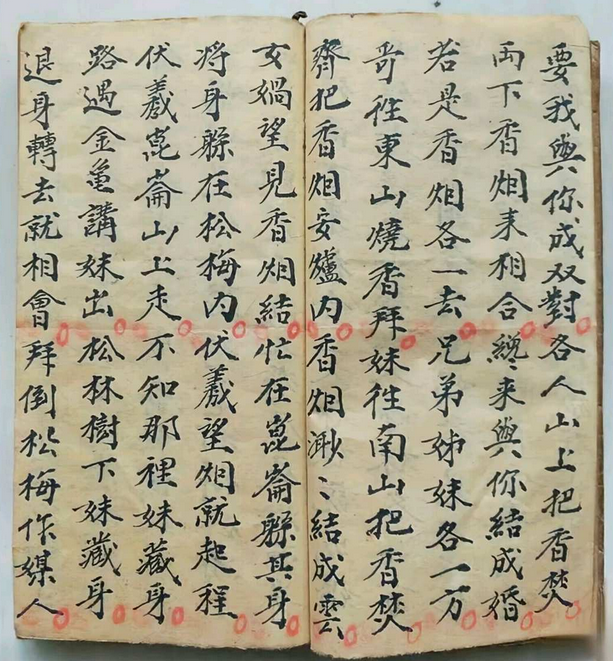 要我與你成双對各人山上把香焚
両下香烟来相合緫来與你結成婚
若是香烟各一去兄弟姊妹各一方
哥往東山燒香拜妹往南山把香焚
齊把香烟安爐内香烟渺〻結成雲
女媧望見香烟結忙在崑崙躱其身
将身躱在松梅内伏羲望烟就起程
伏羲崑崙山上走不知那裡妹藏身
路遇金亀講妹出松林樹下妹藏身
退身轉去就相會拜倒松梅作媒人